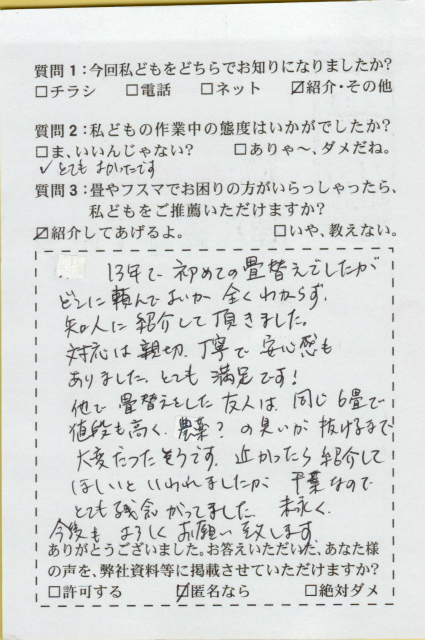 質問1:今回私どもをどちらでお知りになりましたか?
□チラシ □電話 □ネット ☑紹介・その他
質問2:私どもの作業中の態度はいかがでしたか?
□ま、いいんじゃない? □ありゃ~、ダメだね。
✓とてもよかったです
質問3:畳やフスマでお困りの方がいらっしゃったら、
私どもをご推薦いただけますか?
☑紹介してあげるよ。 □いや、教えない。
13年で初めての畳替えでしたが
どこに頼んでよいか全くわからず、
知人に紹介して頂きました。
対応は親切、丁寧で安心感も
ありました。とても満足です!
他で畳替えをした友人は、同じ6畳で
値段も高く、農薬?の臭いが抜けるまで
大変だったそうです。近かったら紹介して
ほしいといわれましたが千葉なので
とても残念がってました。末永く、
今後もよろしくお願い致します。
ありがとうございました。お答えいただいた、あなた様
の声を、弊社資料等に掲載させていただけますか?
□許可する ☑匿名なら □絶対ダメ